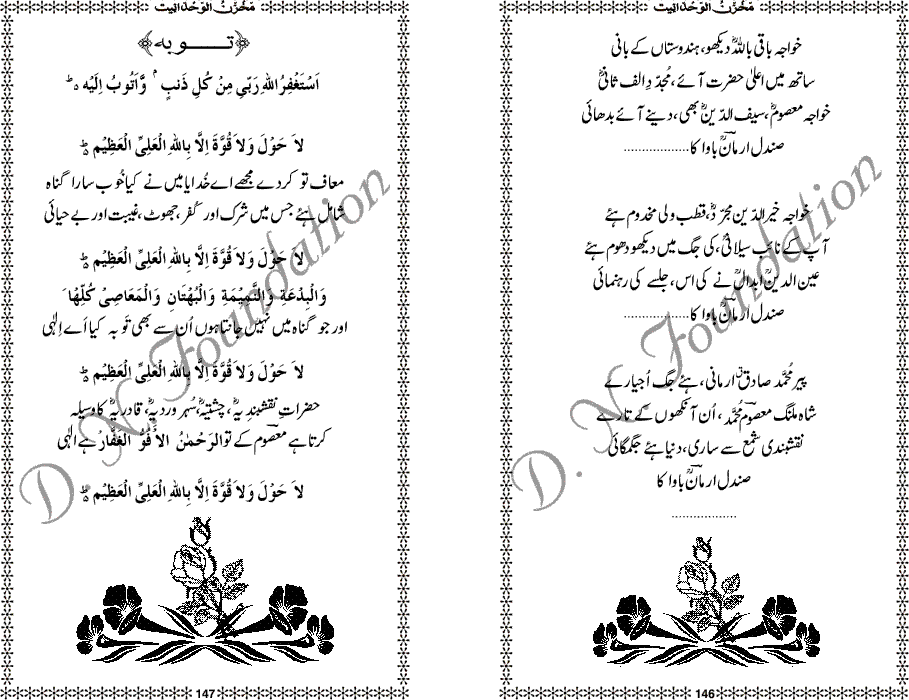 مَخْزَنُ الْوَحْدَانِیَت
خواجہ باقی باللہؒ دیکھو، ہندوستاں کے بانی
ساتھ میں اعلیٰ حضرت آئے، مُجدّدِ الف ثانیؒ
خواجہ معصومؒ، سیف الدّینؒ بھی، دینے آئے بدھائی
صندل ارمانؒ باوا کا..................
خواجہ خیرالدّین مجرّدؒ، قطب ولی مخدوم ہئے
آپ کے نائب سیلانیؒ، کی جگ میں دیکھو دھوم ہئے
عین الدین ابدالؒ نے کی اس، جلسے کی رہنمائی
صندل ارمانؒ باوا کا..................
پیر مُحمَّد صادق ارمانی، ہئے جگ اُجیارے
شاہ ملنگ معصوم مُحمَّد، اُن آنکھوں کے تارے
نقشبندی شمع سے ساری، دنیا ہئے جگمگائی
صندل ارمانؒ باوا کا
..................
146
مَخْزَنُ الْوَحْدَانِیَت
﴿توبہ﴾
اَسْتَغْفِرُ اللہ رَبِّی مِنْ کُلِّ ذَنبٍ وَّاَتُوبُ اِلَیْه ط
لاَ حَوْلَ وَلاَ قُوَّةَ اِلَّا بِاللهِ الْعَلِیِّ الْعَظِیْم ط
معاف تو کر دے مجھے اے خُدایا میں نے کیا خُوب سارا گناہ
شامل ہئے جس میں شرک اور کُفر، جھوٹ، غیبت اور بے حیائی
لاَ حَوْلَ وَلاَ قُوَّةَ اِلَّا بِاللهِ الْعَلِیِّ الْعَظِیْم ط
وَالْبِدْعَةِ وَالنَّمِیْمَةِ وَالْبُهْتَانِ وَالْمَعَاصِیْ کُلِّهَا
اور جو گناہ میں نہیں جانتا ہوں اُن سے بھی تَوبہ کیا اَے اِلٰہی
لاَ حَوْلَ وَلاَ قُوَّةَ اِلَّا بِاللهِ الْعَلِیِّ الْعَظِیْم ط
حضراتِ نقشبندیہؒ، چشتیہؒ، سُہروردیہؒ، قادریہؒ کا وسیلہ
کرتا ہے معصوم کے تو الرَحْمٰنُ الْغَفَّارُ ہے اِلٰہی
لاَ حَوْلَ وَلاَ قُوَّةَ اِلَّا بِاللهِ الْعَلِیِّ الْعَظِیْم ط
147
D. N. Foundation
D. N. Foundation